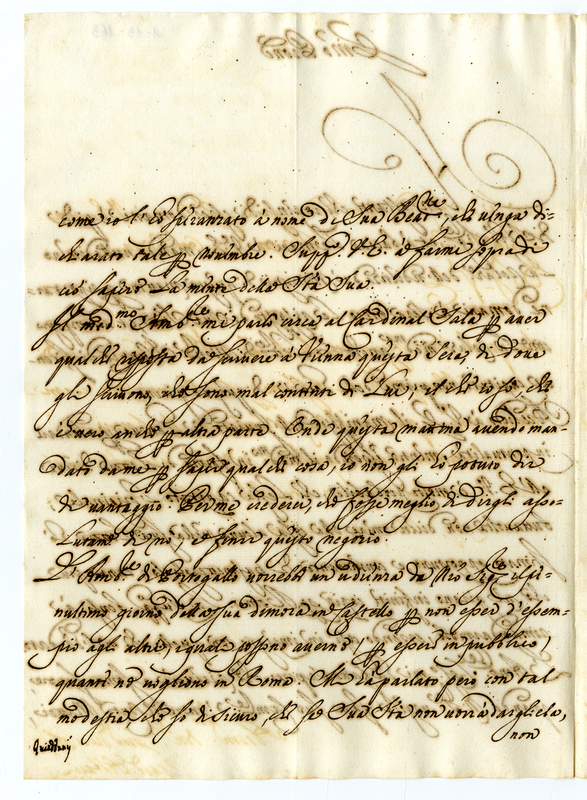 come io l'ho sicurarato à nome di Sua Beat.ne che venga di=
chiarato tale p novembre. Supp.o V.E. à farmi sopra di
ciò sapere la mente della S.tà Sua.
Il med.mo Amb.re mi parlò circa al Cardinal Sala p aver
qualche risposta da scrivere à Vienna questa sera, di dove
gli scrivono, che sono mal contenti di Lui; il che io sò, che
è vero anche p altra parte. Onde questa mattina avendo man=
dato da me p sapere qualche cosa, io non gli ho potuto dir
di vantaggio. Per me crederei, che fosse meglio di dirgli asso=
lutam.te di nò, e finir questo negozio.
L'Amb.re di Portogallo vorrebbe un udienza da N.ro Sig.re il pe=
nultimo giorno della sua dimora in Castello p non esser d'essem=
pio agli altri, i quali possono averne (p essere in pubblico)
quante ne vogliono in Roma. Mi hà parlato però con tal
modestia, che sò di sicuro, che se Sua S.tà non vorrà dargliela,
non